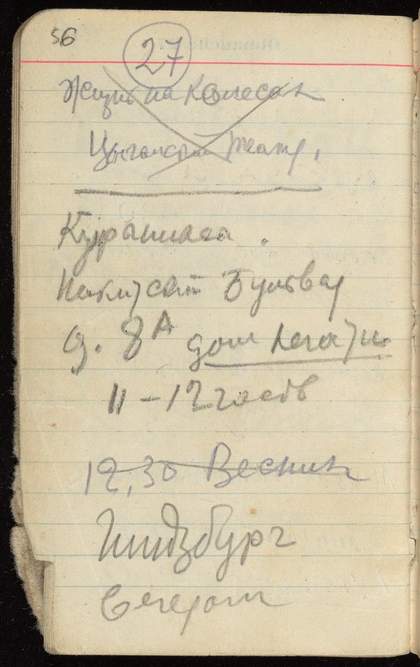 56
27
Жизнь на колесах
Цыганский театр,
Никитский Бульвар
д. 8А дом печати
11-12 часов
12,30 Веснин
Гинзбург
вечером